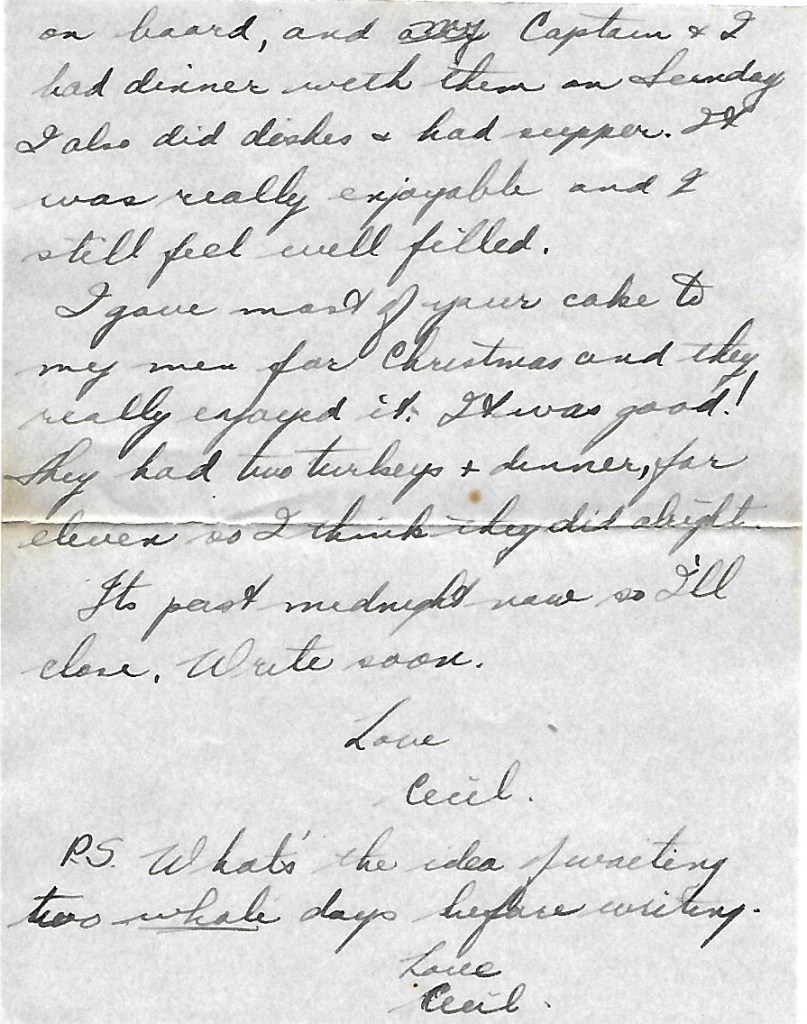 on board, and my Captain & I
had dinner with them on Sunday
I also did dishes & had supper. It
was really enjoyable and I
still feel well filled.
I gave most of your cake to
my men for Christmas and they
really enjoyed it. It was good!
They had two turkeys & dinner, for
eleven so I think they did alright.
Its past midnight now so I'll
close. Write soon.
Love
Cecil.
P.S. What's the idea of waiting
two whole days before writing.
Love
Cecil.